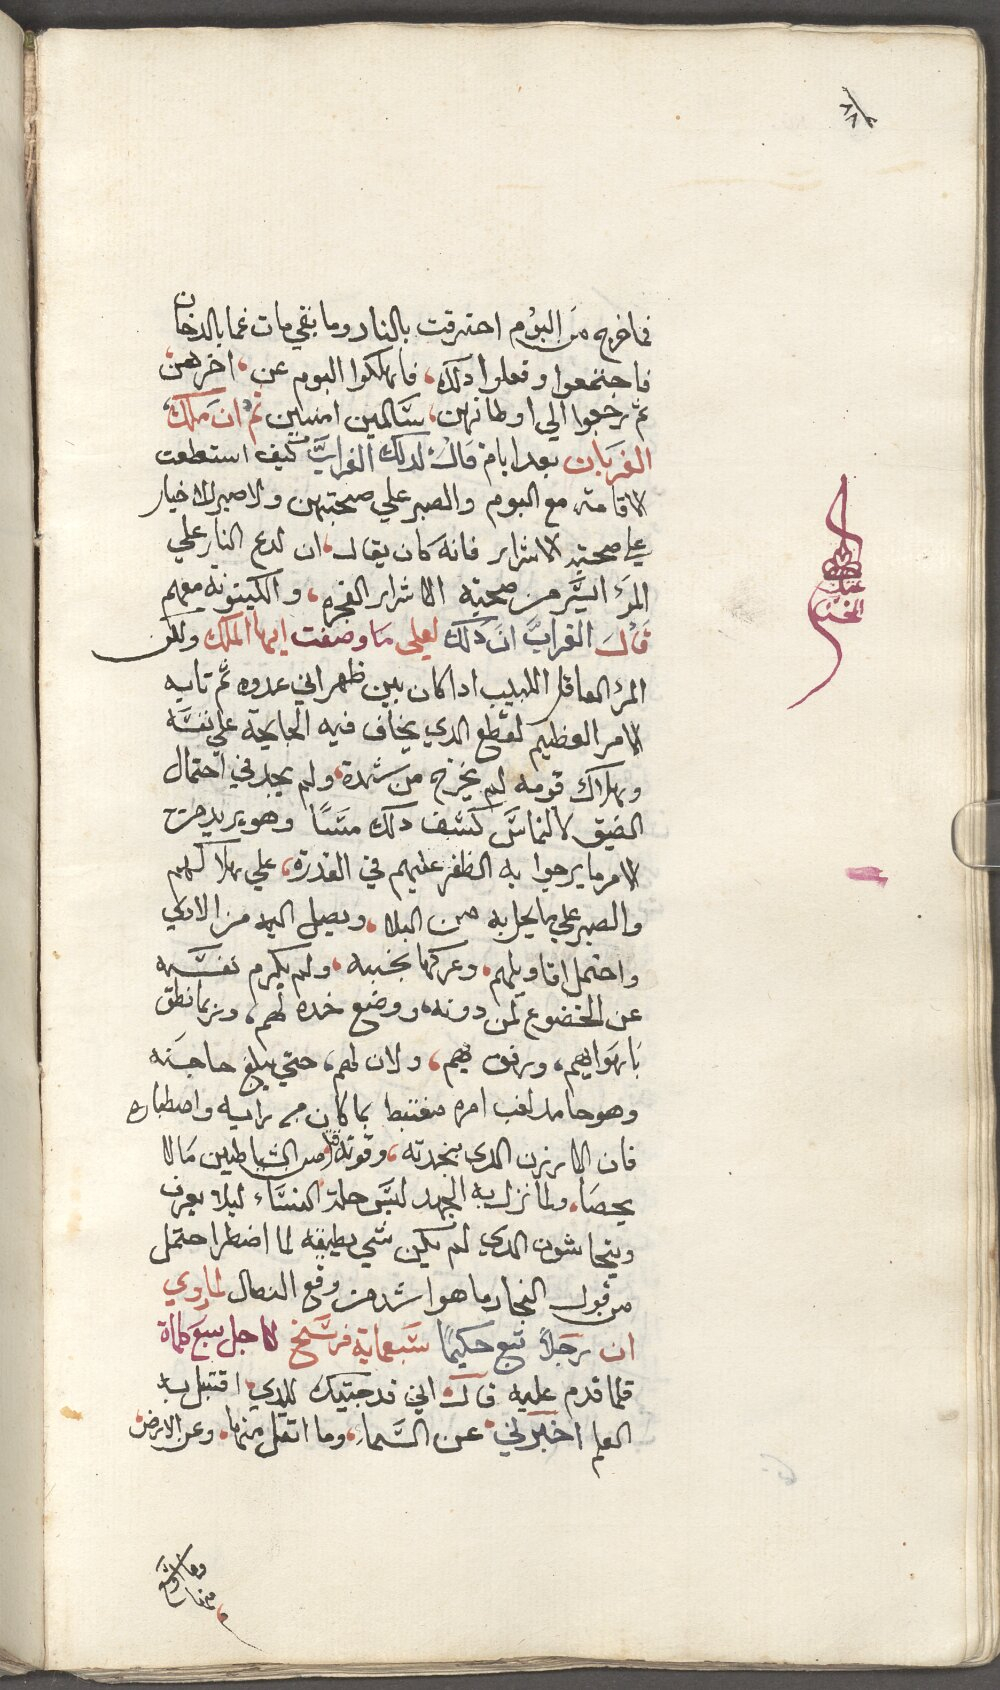 ٨٧
فما خرج من البوم احترقت بالنار وما بقي مات غما بالدخان
فاجتمعوا وفعلوا دلك، فاهلكوا البوم عن، اخرهن
ثم رجعوا الي اوطانهن، سالمين امنين ثم ان ملك
الغربان بعد ايام قال لدلك الغراب كيف استطعت
الاقامة، مع البوم والصبر علي صحبتهن ولا صبر لاخيار
علي صحبة الاشرار فانه كان يقال، ان لدع النار علي
المرء ايسر من صحبة الاشرار الفجره، والكينونه معهم
قال الغراب ان دلك لعلي ما وصفت ايها الملك ولكن
المرء العاقل اللبيب ادا كان بين ظهراني عدوه ثم تايه
الامر العظيم لقطع الدي يخاف فيه الجايحة علي نفسه
وهلاك قومه لم يخرج من شدة، ولم يجد في احتمال
الضيق لالتماس كشف دلك مسا وهو يريد من
الامر ما يرجوا به الظفر عليهم في القدرة، علي هلاكهم
والصبر علي ما يحل به من البلا، ويصل اليه من الادي
واحتمل اقاويلهم، وعركها بجنبه، ولم يكرم نفسه
عن الخضوع لمن دونه، ووضع خده لهم، وربما نطق
باهوايهم، ورفق بهم، ولان لهم، حتي يبلغ حاجته
وهو حامد لغب امره مغتبط بما كان من رايه واصطباره
فان الا برزن الدي بنجدته، وقوته من الشياطين ما لا
يحصا، ولما نزل به الجهد لبس حلة النساء ليلا يعرف
وينجا شون الدي لم يكن شي يطيقه لما اضطر احتمل
من قول الفجار ما هو اشد من وقع النصال لما روي
ان رجلا تبع حكيما سبعماية فرسخ لاجل سبع كلماة
فلما قدم عليه قال اني قد جيتك للدي اقتبل به
العلم اخبرني عن السماء، وما اثقل منها، وعن الارض
وما اوسع
منها